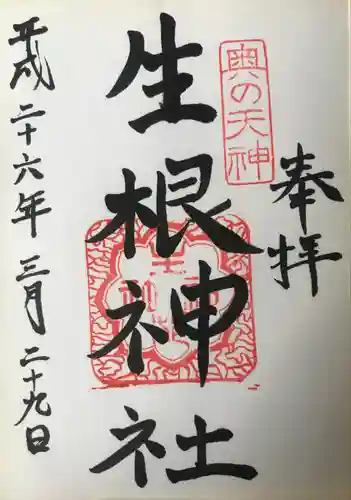 奥の天神
奉拝
生根神社
平成二十六年三月二十九日